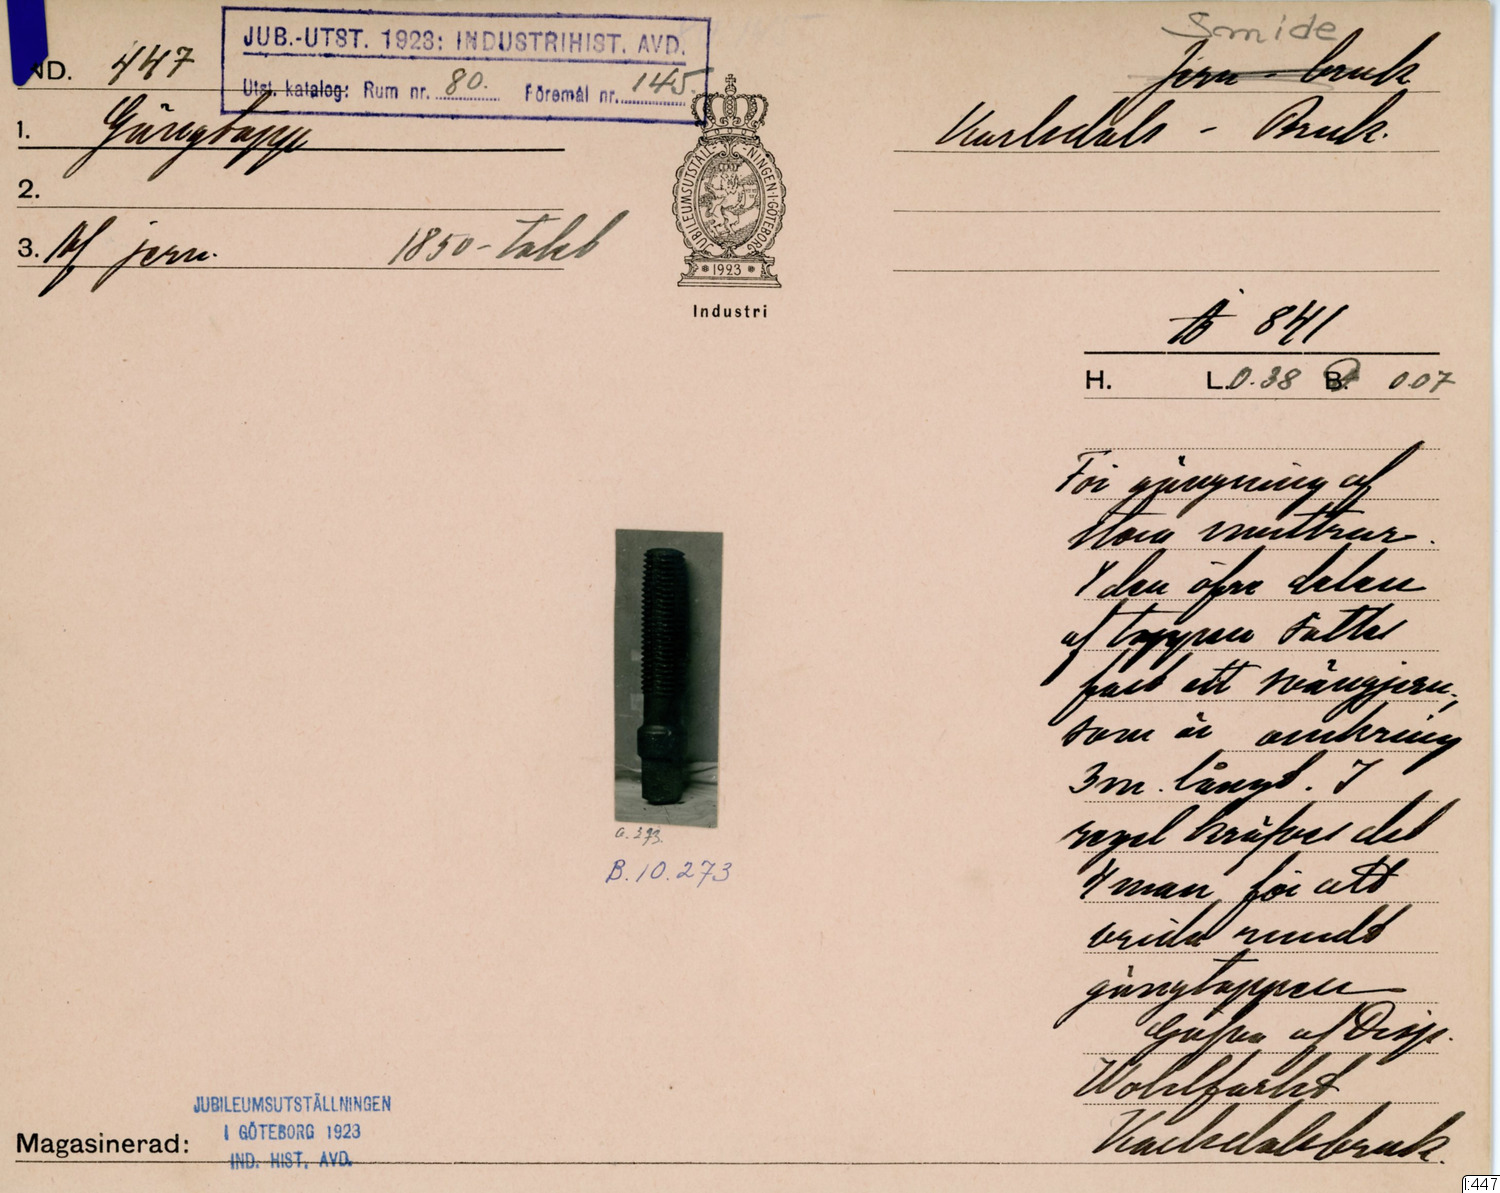 Smide
Jern-bruk
JUB.-UTST. 1923: INDUSTRIHIST. AVD.
Utst. katalog: Rum nr. 80. Föremål nr. 145.
ND. 447
1. Gängtapp
Karlsdals - Bruk.
2.
3. Af jern. 1850-talet
JUBILEUMSUTSTÄLL-NINGEN·I·GÖTEBORG
* 1923 *
Industri
841
H. L. 0.38 B. 0.07
För gängning af
stora muttrar.
I den öfre delen
af tappen sättes
fast ett svängjern,
som är omkring
3 m. långt. I
regel kräfves det
4 man för att
vrida rundt
gängtappen
Gåfva af Disp.
Wohlfarht
Karlsdalsbruk.
B.10.273
JUBILEUMSUTSTÄLLNINGEN
I GÖTEBORG 1923
IND. HIST. AVD.
Magasinerad:
I:447